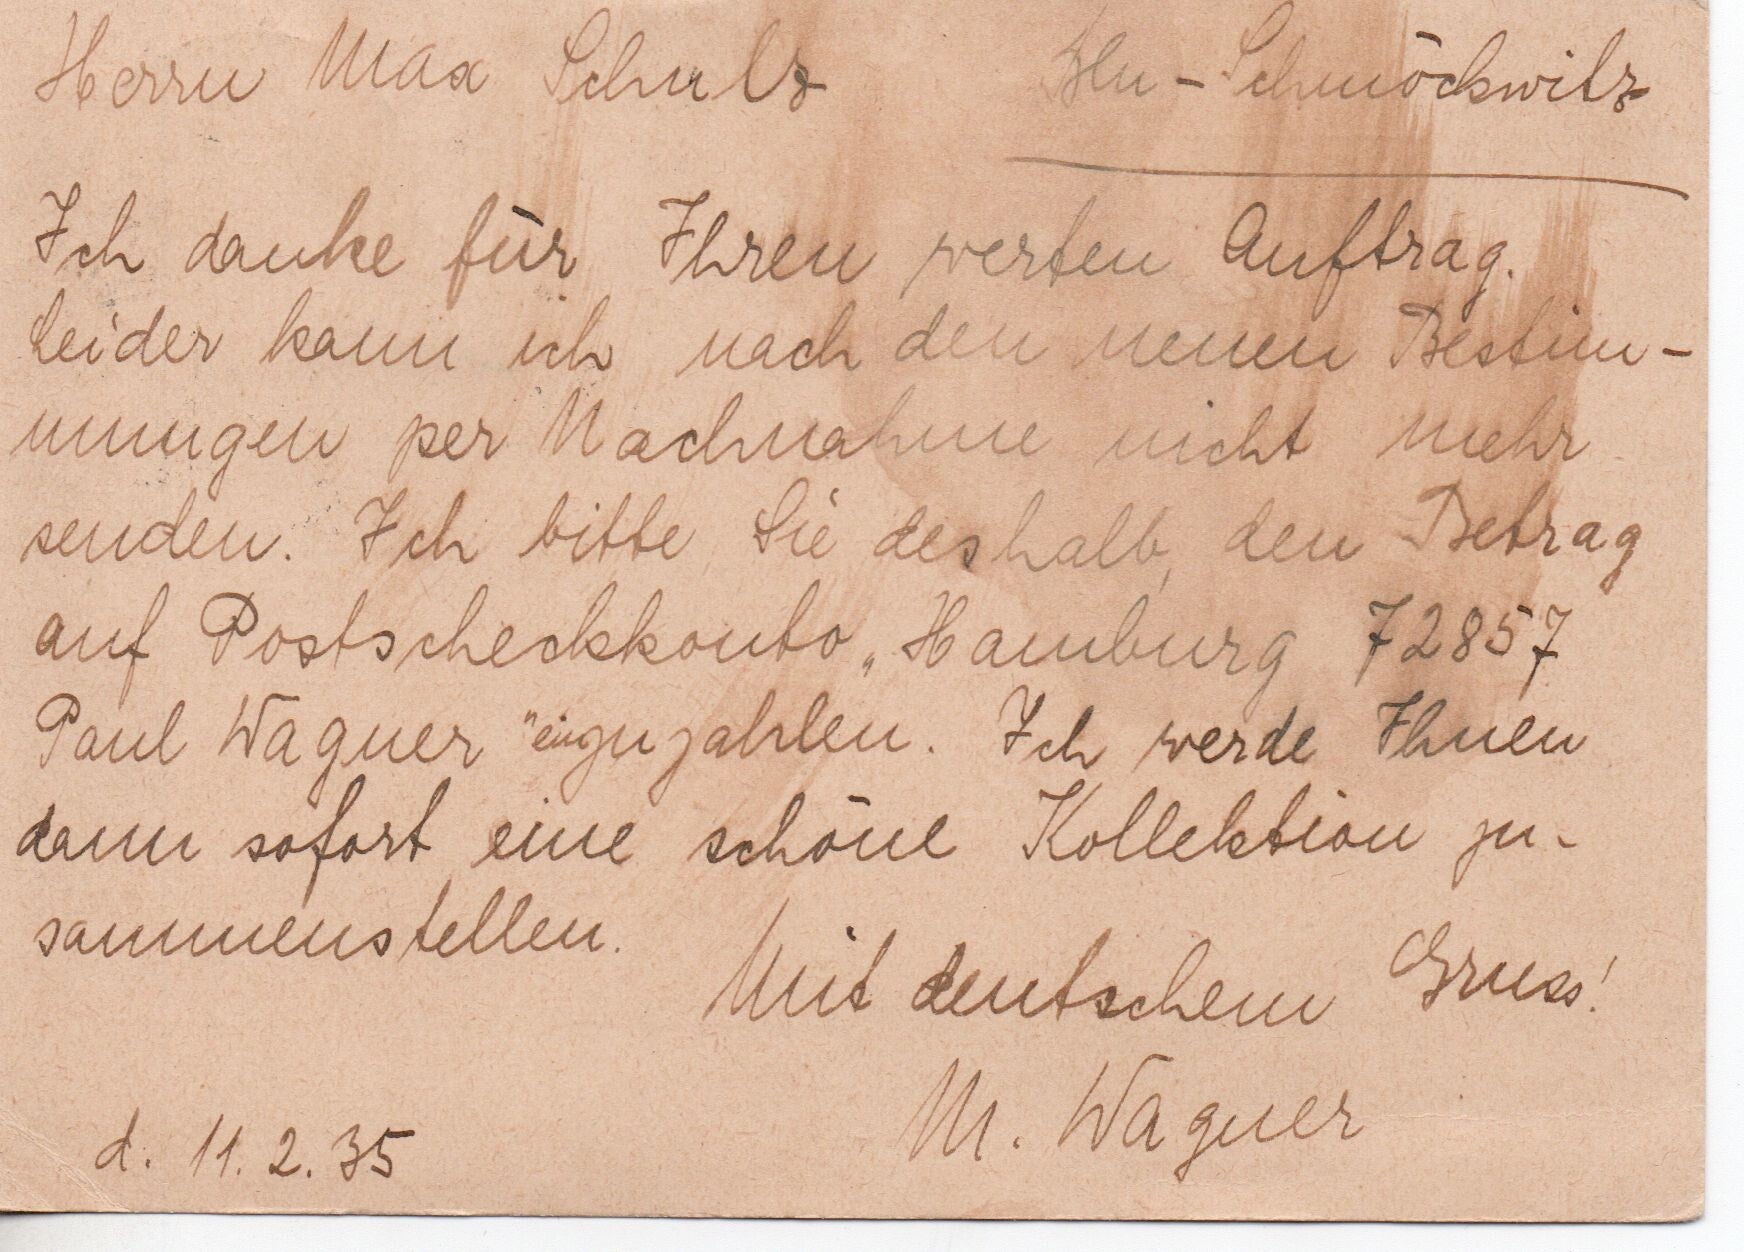 Herrn Max Schulz Bln-Schmöckwitz
Ich danke für Ihren werten Auftrag.
Leider kann ich nach den neuen Bestim-
mungen per Nachnahme nicht mehr
senden. Ich bitte Sie deshalb, den Betrag
auf Postscheckkonto „Hamburg 72857
Paul Wagner" einzuzahlen. Ich werde Ihnen
dann sofort eine schöne Kollektion zu-
sammenstellen.
Mit deutschem Gruss!
M. Wagner
d. 11.2.35